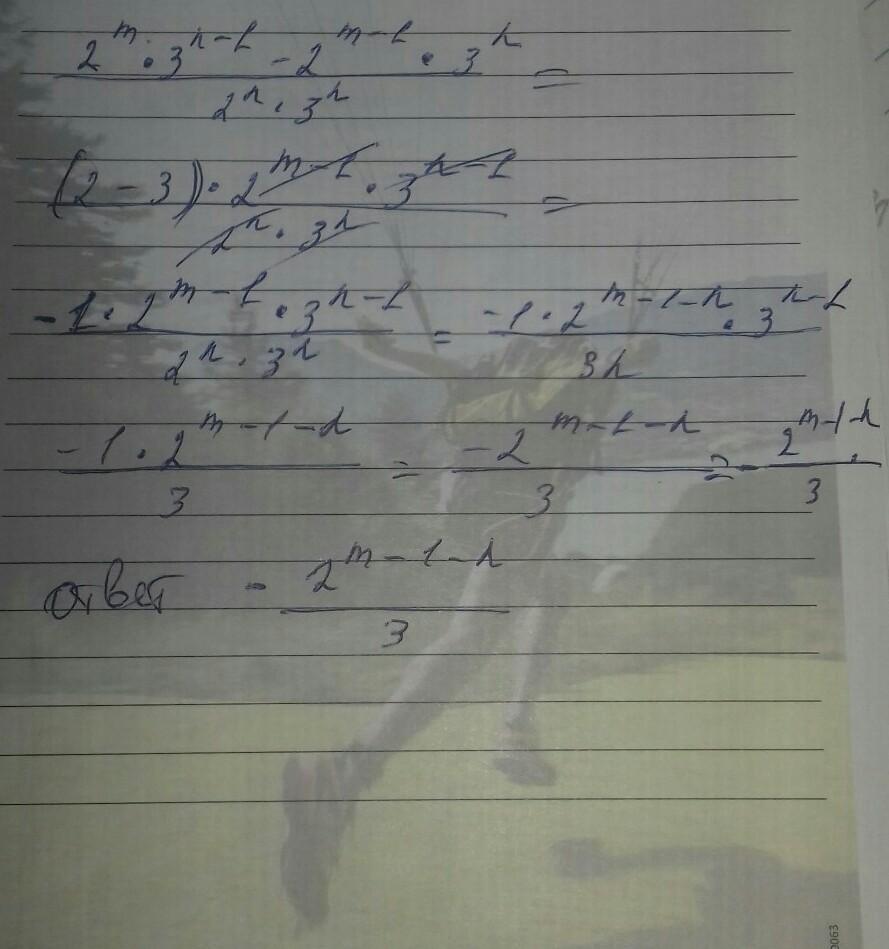 2^m · 3^{n-1} - 2^{m-1} · 3^n / 2^n · 3^n =
(2 - 3) · 2^{m-1} · 3^{n-1} / 2^n · 3^n =
-1 · 2^{m-1} · 3^{n-1} / 2^n · 3^n = -1 · 2^{m-1-n} · 3^{n-1} / 3n
-1 · 2^{m-1-n} / 3 = -2^{m-1-n} / 3 = - 2^{m-1-n} / 3
ответ - 2^{m-1-n} / 3
0063